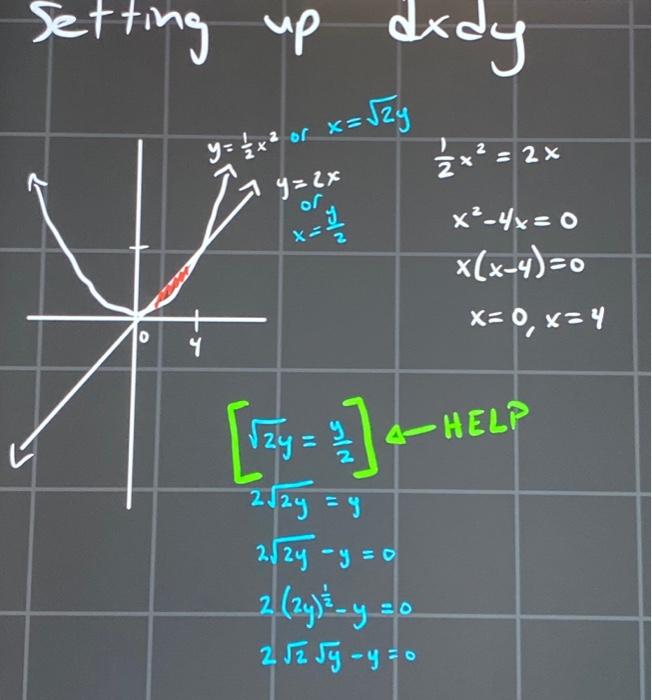 Setting up dxdy
y=½x² or x=√2y
y=2x
or
x=y/2
½x² = 2x
x²-4x=0
x(x-4)=0
x=0, x=4
0
4
[√2y = y/2] ← HELP
2√2y = y
2√2y - y = 0
2(2y)^½ - y = 0
2√2 √y - y = 0